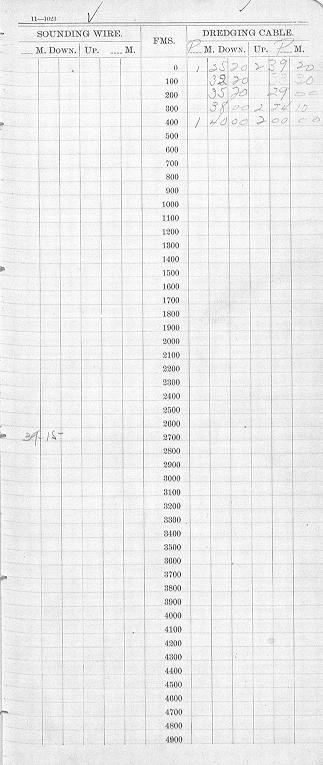 11—1021
SOUNDING WIRE. FMS. DREDGING CABLE.
M. DOWN. UP. M. P. M. DOWN. UP. P. M.
0 1 25 20 2 39 20
100 32 20 33 30
200 35 20 29 00
300 38 00 2 24 15
400 1 40 00 2 00 00
500
600
700
800
900
1000
1100
1200
1300
1400
1500
1600
1700
1800
1900
2000
2100
2200
2300
2400
2500
2600
2700
2800
2900
3000
3100
3200
3300
3400
3500
3600
3700
3800
3900
4000
4100
4200
4300
4400
4500
4600
4700
4800
4900